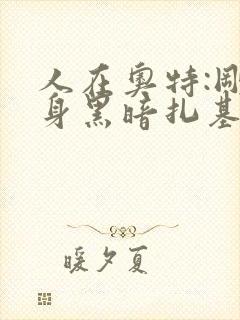 人在奥特:刚
身黑暗扎基
暖夕夏